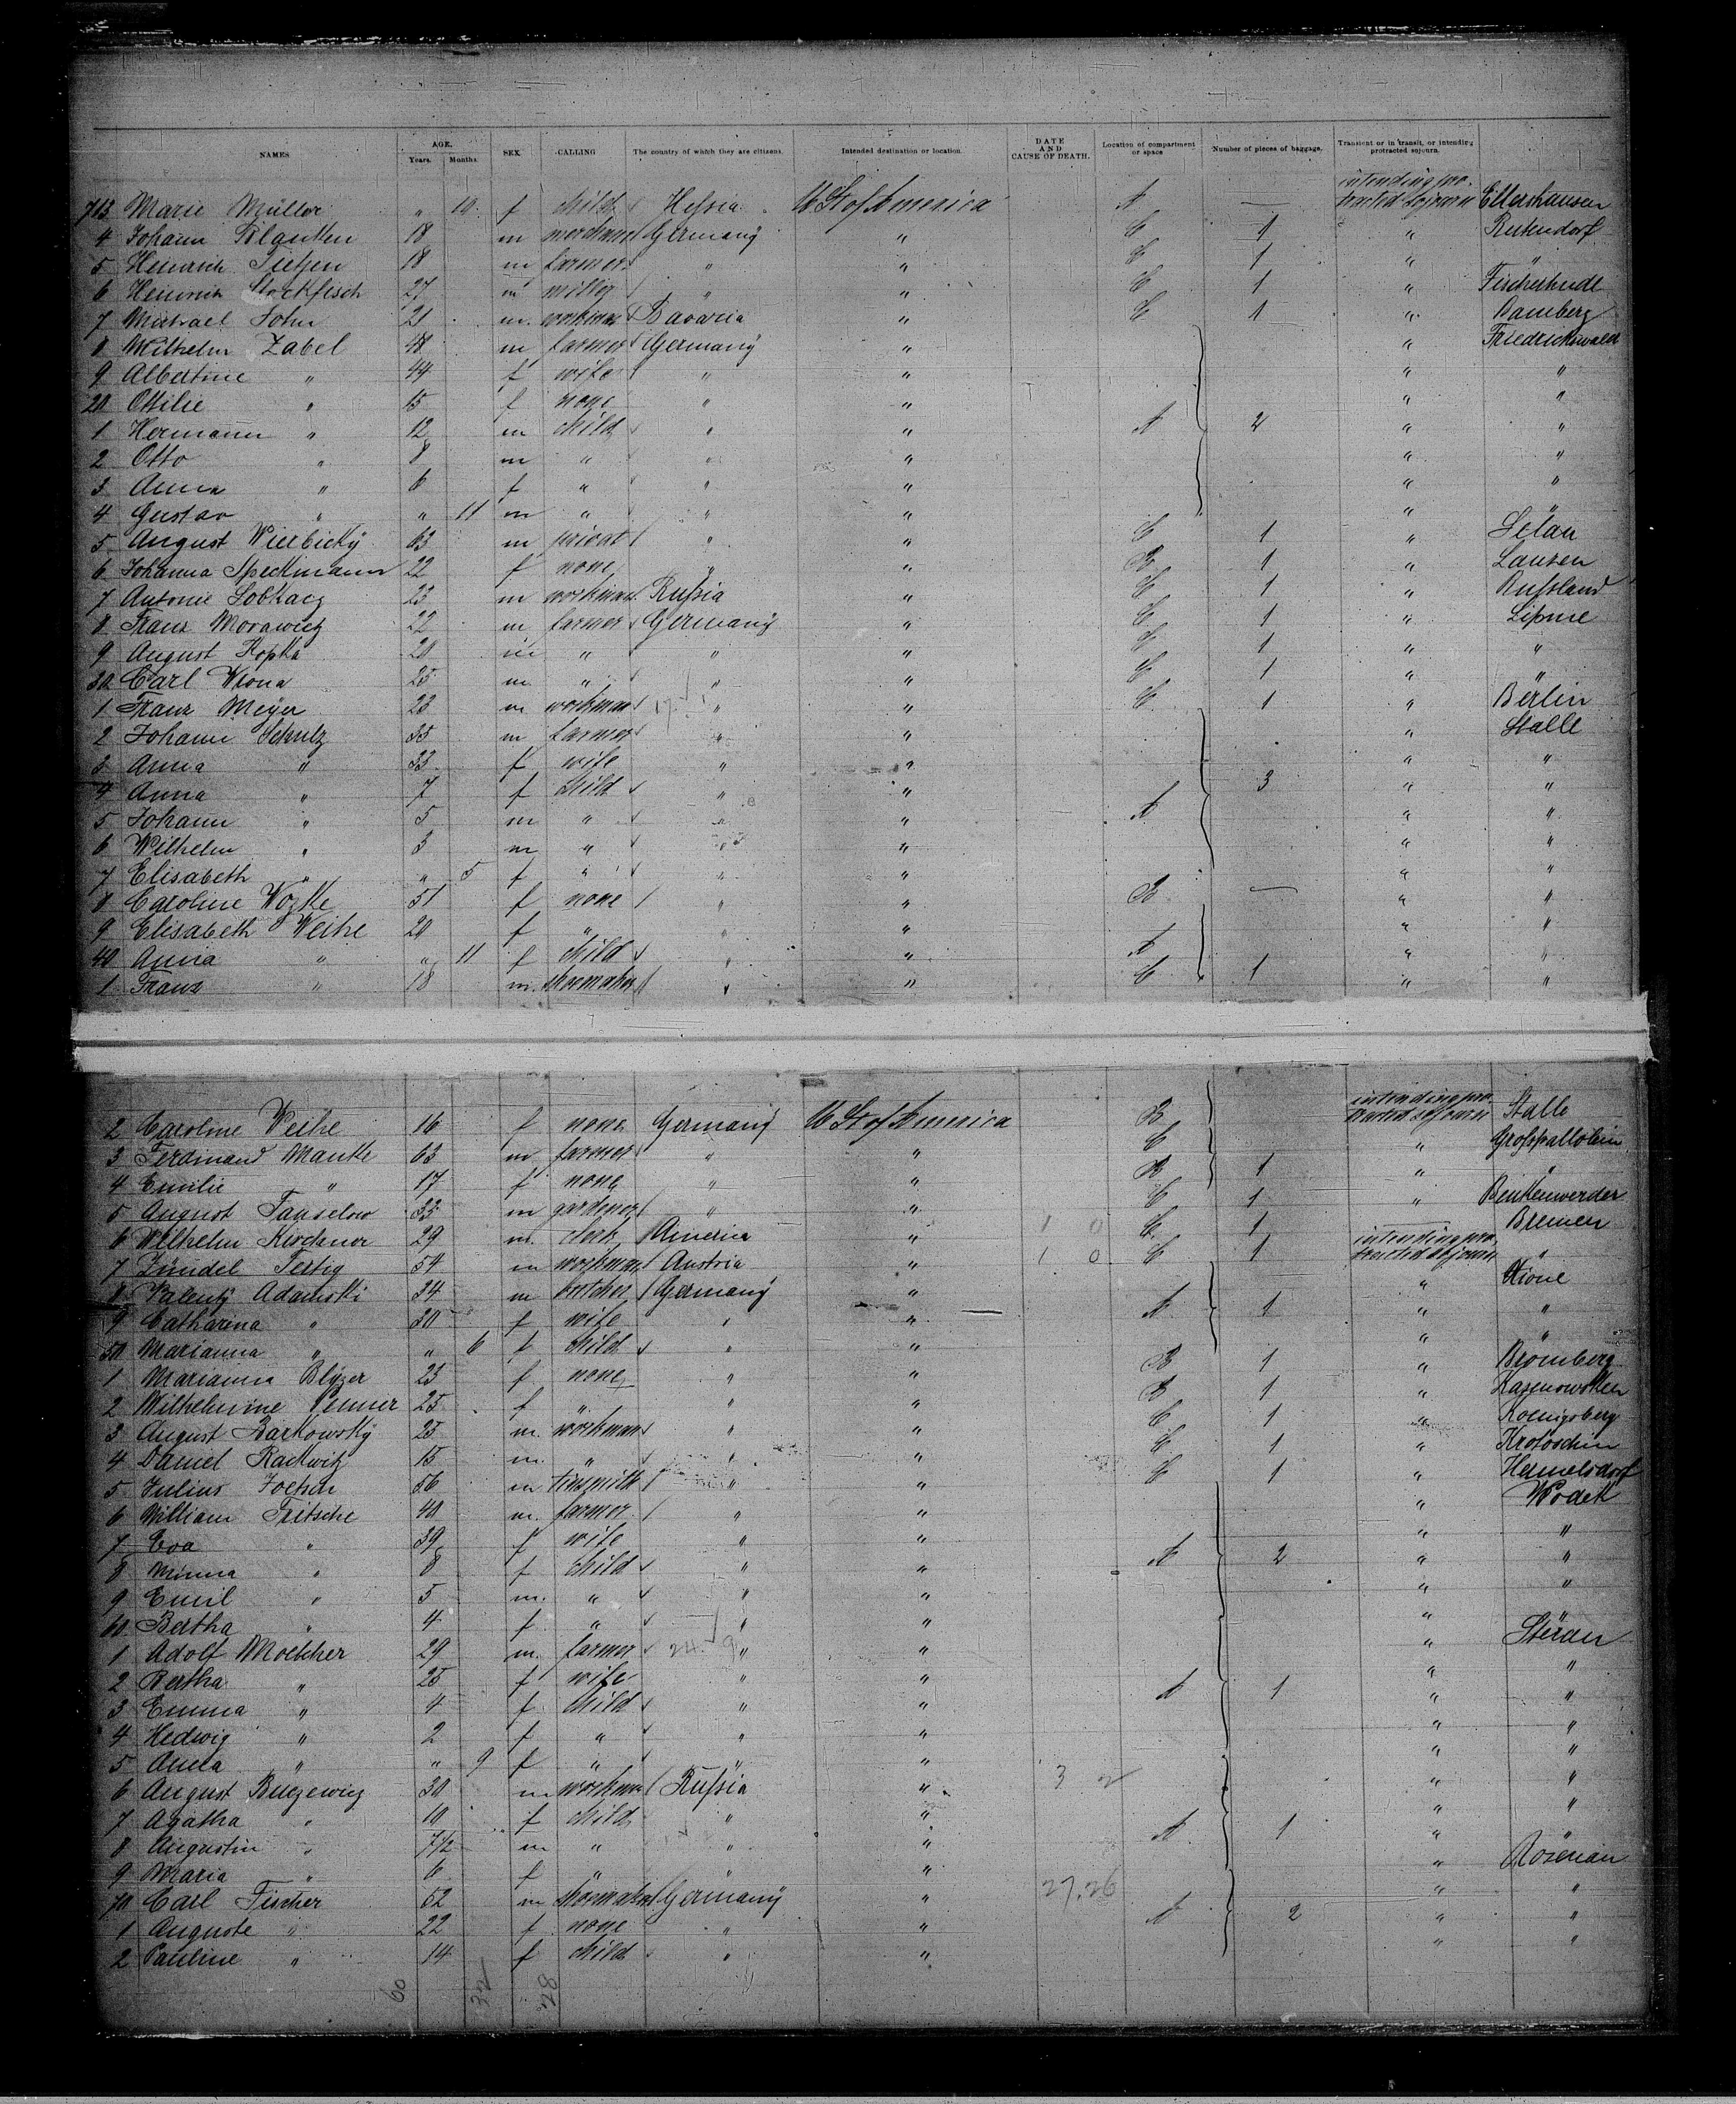 NAMES AGE. Years. Months. SEX. CALLING The country of which they are citizens. Intended destination or location. DATE AND CAUSE OF DEATH. Location of compartment or space Number of pieces of baggage. Transient or in transit, or intending protracted sojourn.
713 Marie Müller " 10 f child Hessia U St of America A — intending protracted sojourn Ellershausen
4 Johann 18 m Germany " C 1 "
5 Heinrich Tietjen 18 m farmer " " C 1 " "
6 Heinrich Stockfisch 27 m " " C 1 " Fischerhude
7 Michael John 21 m workman Bavaria " C 1 " Bamberg
8 Wilhelm Zabel 48 m farmer Germany " " Friedrichswald
9 Albertine " 44 f wife " " " "
20 Ottilie " 15 f none " " " "
1 Hermann " 12 m child " " A 2 " "
2 Otto " 8 m " " " " "
3 Anna " 6 f " " " " "
4 Gustav " " 11 m " " " " "
5 August Wierbicky 63 m privat " " C 1 "
6 Johanna Speckmann 22 f none " " B 1 " Lansen
7 Antonie 23 m workman Russia " C 1 " Russland
8 Franz Morawietz 22 m farmer Germany " C 1 "
9 August Kopka 20 m " " " C 1 " "
30 Carl Wrona 25 m " " " C 1 " "
1 Franz Meyer 23 m workman " " C 1 " Berlin
2 Johann Schulz 35 m farmer " " " Stalle
3 Anna " 33 f wife " " " "
4 Anna " 7 f child " " 3 " "
5 Johann " 5 m " " " A " "
6 Wilhelm " 3 m " " " " "
7 Elisabeth " " 5 f " " " " "
8 Caroline Wozke 51 f none " " B — " "
9 Elisabeth Weihe 20 f " " " " "
40 Anna " " 11 f child " " A " "
1 Franz " 18 m shoemaker " " C 1 " "
2 Caroline Weihe 16 f none Germany U St of America B intending protracted sojourn Stalle
3 Ferdinand Manke 63 m farmer " " C "
4 Emilie " 17 f none " " B 1 " "
5 August Fanselow 33 m gardener " " C 1 "
6 Wilhelm Kirchner 29 m clerk America " 1 0 C 1 Bremen
7 Zündel Fertig 54 m workman Austria " 1 0 C 1 intending protracted sojourn "
8 Valenty Adamski 34 m butcher Germany " "
9 Catharina " 30 f wife " " A 1 " "
50 Marianna " " 6 f child " " " "
1 Marianna 23 f none " " B 1 " Bromberg
2 Wilhelmine Penner 25 f " " " B 1 "
3 August Barkowsky 25 m workman " " C 1 " Koenigsberg
4 Daniel Rackwitz 15 m " " " C 1 " Krotoschin
5 Julius 56 m tinsmith " " C 1 " Hemelsdorf
6 William Fritsche 40 m farmer " " " Wodek
7 Eva " 39 f wife " " " "
8 Minna " 8 f child " " A 2 " "
9 Emil " 5 m " " " " "
60 Bertha " 4 f " " " "
1 Adolf 29 m farmer 24 9 " " "
2 Bertha " 25 f wife " " " "
3 Emma " 4 f child " " A 1 " "
4 Hedwig " 2 f " " " " "
5 Anna " " 9 f " " " " "
6 August 30 m workman Russia " 3 2 " "
7 Agatha " 10 f child " " " "
8 Augustin " 7 1/2 m " " " A 1 " "
9 Maria " 6 f " " " "
70 Carl Fischer 52 m shoemaker Germany " 27.26 " "
1 Auguste " 22 f none " " A 2 " "
2 Pauline " 14 f child " " " "
60 32 28